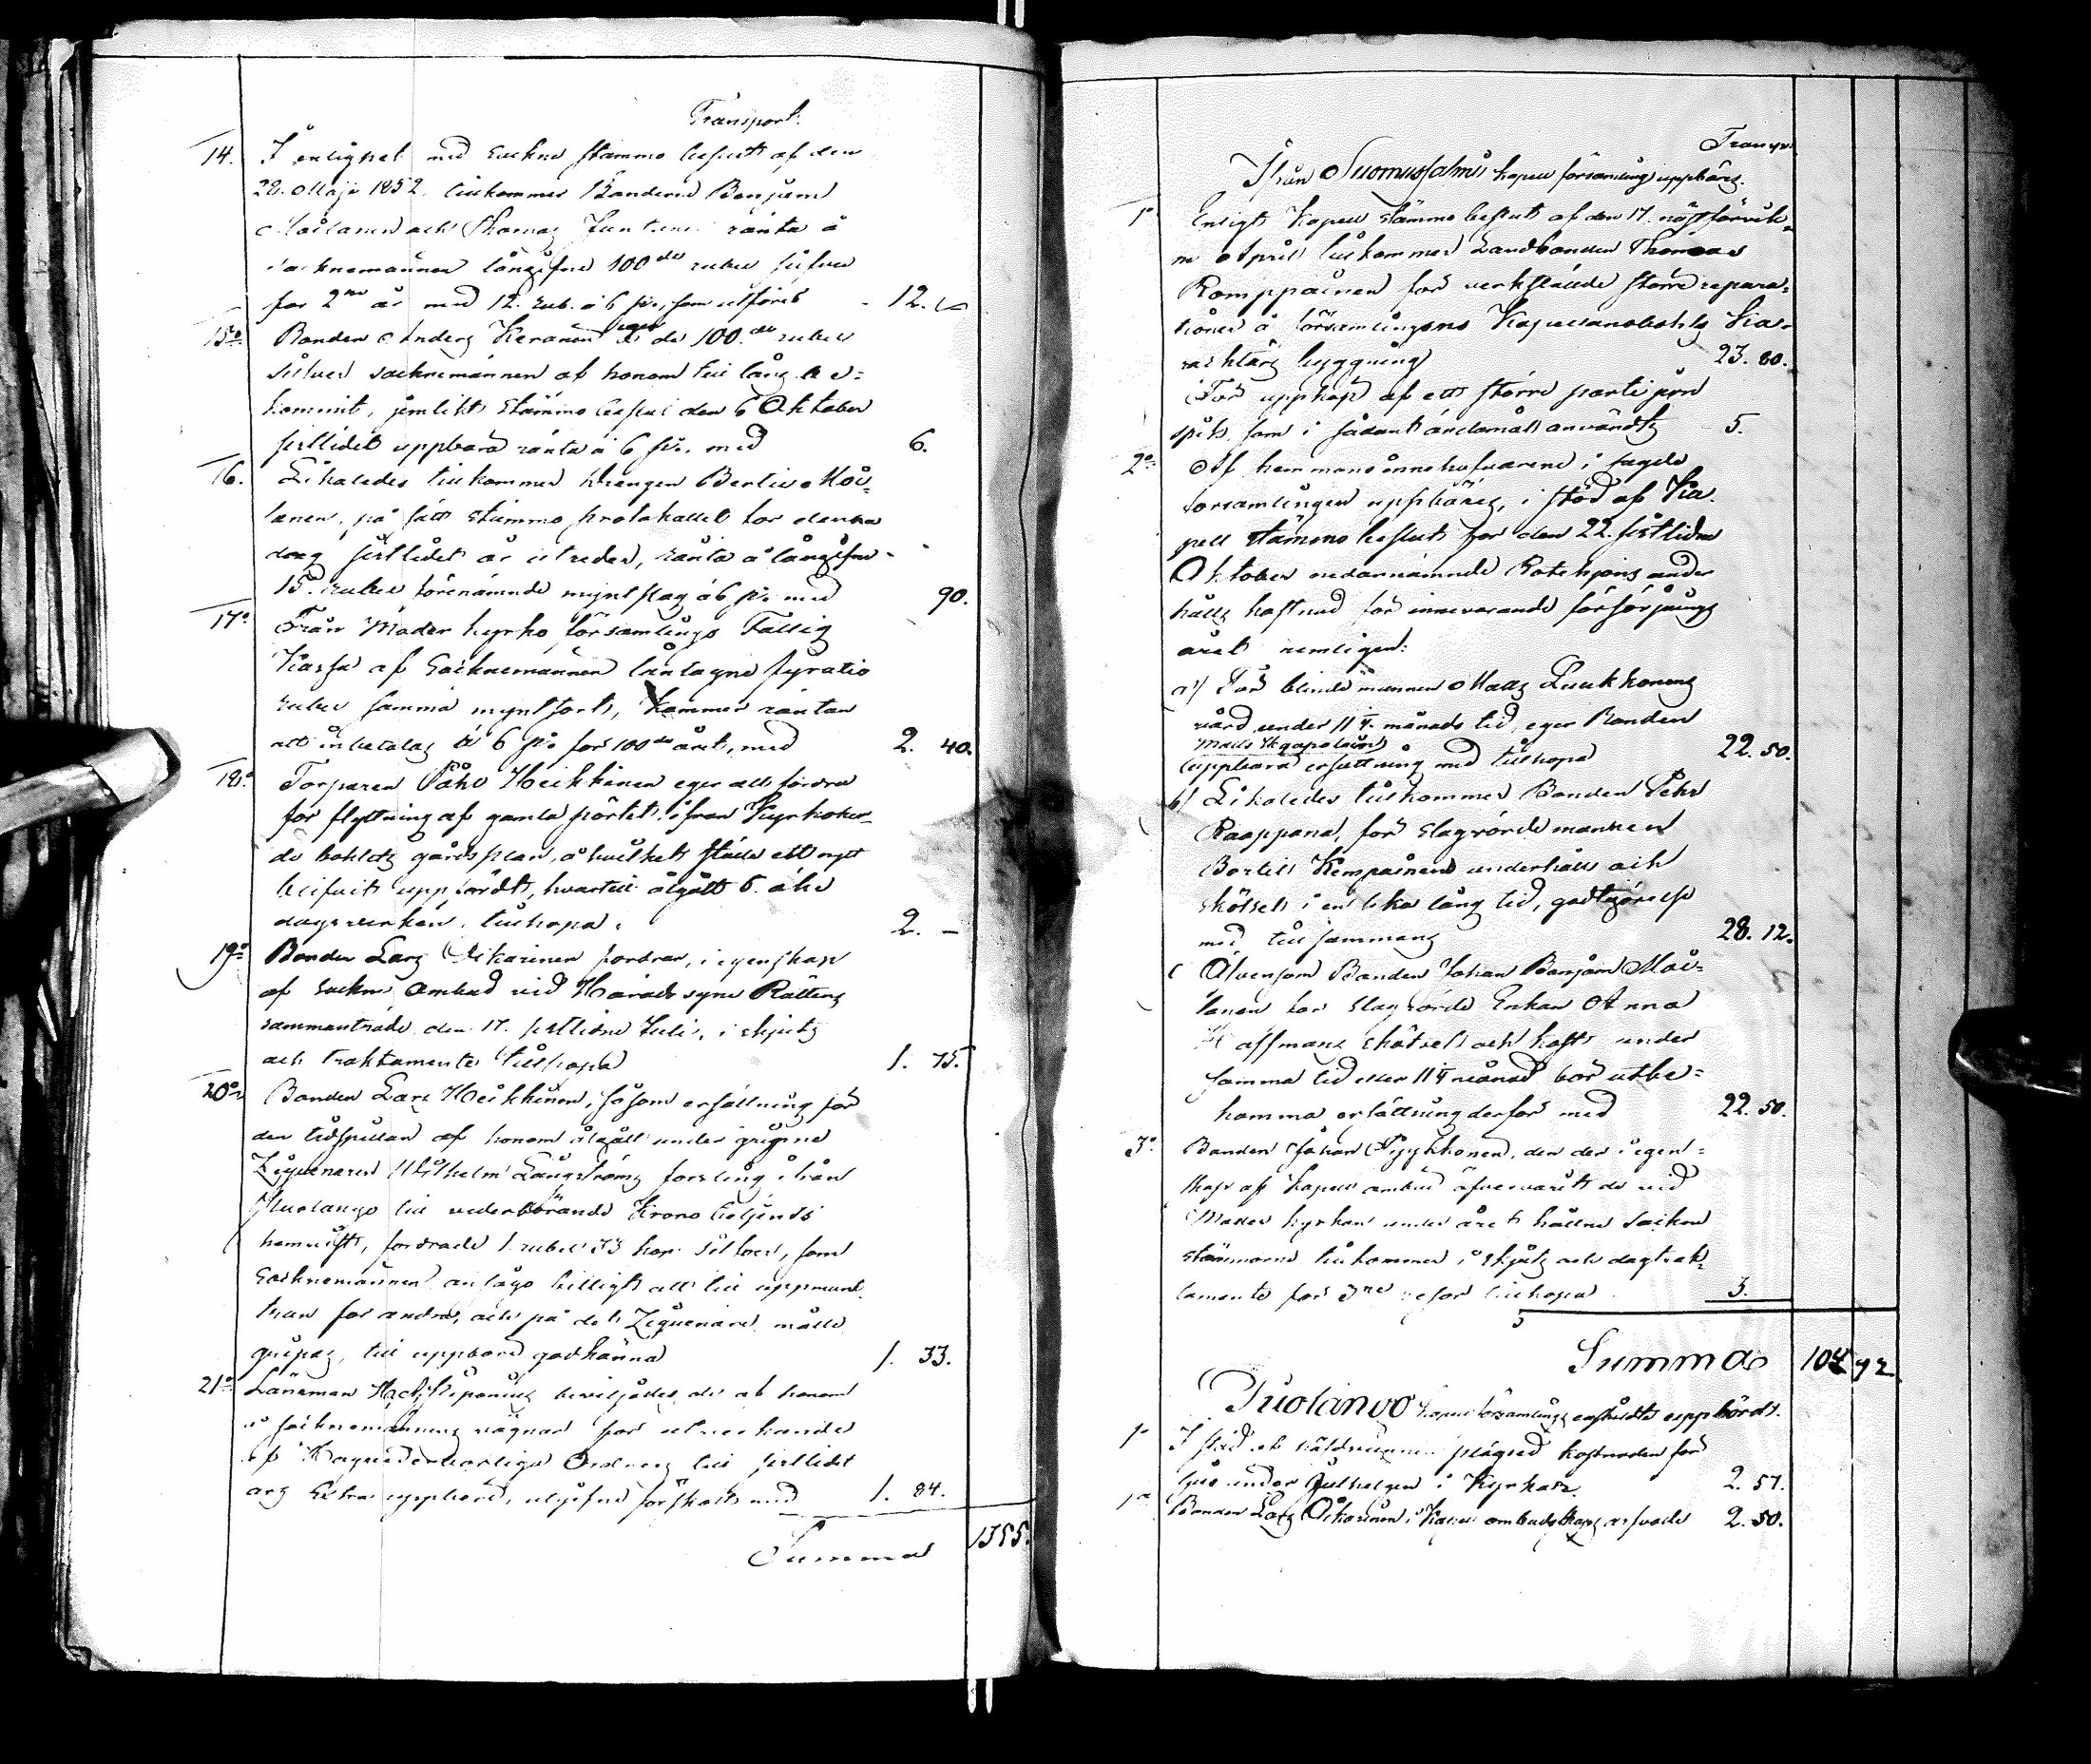 Transport.
14. I enlighet med Sockne stämmo beslut af den
28. Maji 1852. tillkommer Bönderne Benjam
Moilanen och Thomas Juntunen ränta å
Socknemännen långifne 100 de rubel silfver
for 2ne år med 12. Rub. á 6 pr. som utföres - 12. -
15o Bonden Anders Keränen eger å de 100.de rubel
silfver socknemännen af honom till låns be=
kommit, jemlikt Stämmo beslut den 6 Oktober
sistlidet uppbära ränta á 6 pr. med 6.
16. Likaledes tillkommer Drengen Bertil Moi=
lanen, på sätt Stämmo protokollet för denna
dag sistlidet år utreder, ränta å långifne
15. rubel förenämnde myntslag á 6 pr. med 90.
17o Från Moder kyrko församlings Fattig
Kassa af Socknemännen låntagne fyratio
rubel samma myntsort, kommer räntan
att inbetalas á 6 pr. for 100 de året, med 2. 40.
18o Torparen Påhl Heikkinen eger att fordra
for flyttning af gamla pörtet ifrån Kyrkoher-
de bohlets gårdsplan, å hvilket ställe ett nytt
blifvit uppfördt, hvartill åtgått 6. öke
dagsverken, tillhopa. 2. -
19o Bonden Lars Oikarinen fordrar, i egenskap
af Sockne Ombud vid Härads syne Rättens
sammanträde den 17. sistlidne Juli, i skjuts
och traktamente tillhopa 1. 75.
20o Bonden Lars Heikkinen, såsom ersättning för
den tidspillan af honom åtgått under gripne
Zigenaren Wilhelm Långströms forsling ifrån
Puolango till vederbörande Krono betjents
hemvist, fordrade 1. rubel 33 kop. Silfver, som
Socknemännen ansågo billigt att till uppmunt
tran for andra, och på det Zigenare måtte
gripas, till uppbörd godkänna 1. 33.
21o Länsman beviljades de af honom
å socknemännens vägnar for
af till sistlidet
års Extra uppbörd, utgifne förskott med 1. 84.
Summa 1355.
Transp.
Från Suomussalmi kapell församling uppbäres.
1o Enligt Kapell stämmo beslut af den 17. nästförvik=
ne April tillkommer Landbonden Thomas
Romppainen for verkställde större repara=
tioner å församlingens Kapellansbohls Ka=
raktärs byggning 23. 80.
For upphop af ett större parti jern
spik, som i sådant ändamål användts 5.
2o Af hemmans innehafvarene i sagde
forsamlingen uppbäres, i stöd af Ka
pell stämmo beslut for den 22. sistlidne
Oktober nedannämnde Rotehjons under
hålls kostnad for innevarande försörjnings
året nemligen:
a) For blinde mannen Matts Luukkonens
vård under 11 1/4. månads tid, eger Bonden
Matts
uppbära ersättning med tillhopa 22. 50.
b) Likaledes tillkommer Bonden Pehr
Raappana, for slagrörde mannen
Bertil Kemppainens underhåll och
skötsel i en lika lång tid, godtgörelse
med tillsammans 28. 12.
c Ävensom Bonden Johan Benjam Moi=
lanen for slagrörde Enkan Anna
Haffmans skötsel och kost under
samma tid eller 11 1/4 månad bör utbe=
komma ersättning derför med 22. 50.
3o Bonden Johan Pyykkönen, den der i egen=
skap af Kapell ombud öfvervarit de vid
Moder kyrkan under året hållne Socken
stämmorne tillkommer i skjuts och dagtrak
tamente for 3ne resor tillhopa 3.
Summa 104 92
Puolango kapell församlings enskildta uppbördt.
1o I stöd af plägsed kostnaden for
ljus under Julhelgen i Kyrkan. 2. 57.
1o Bonden Lars Oikarinen i Kapell ombudskaps arfvode 2. 50.